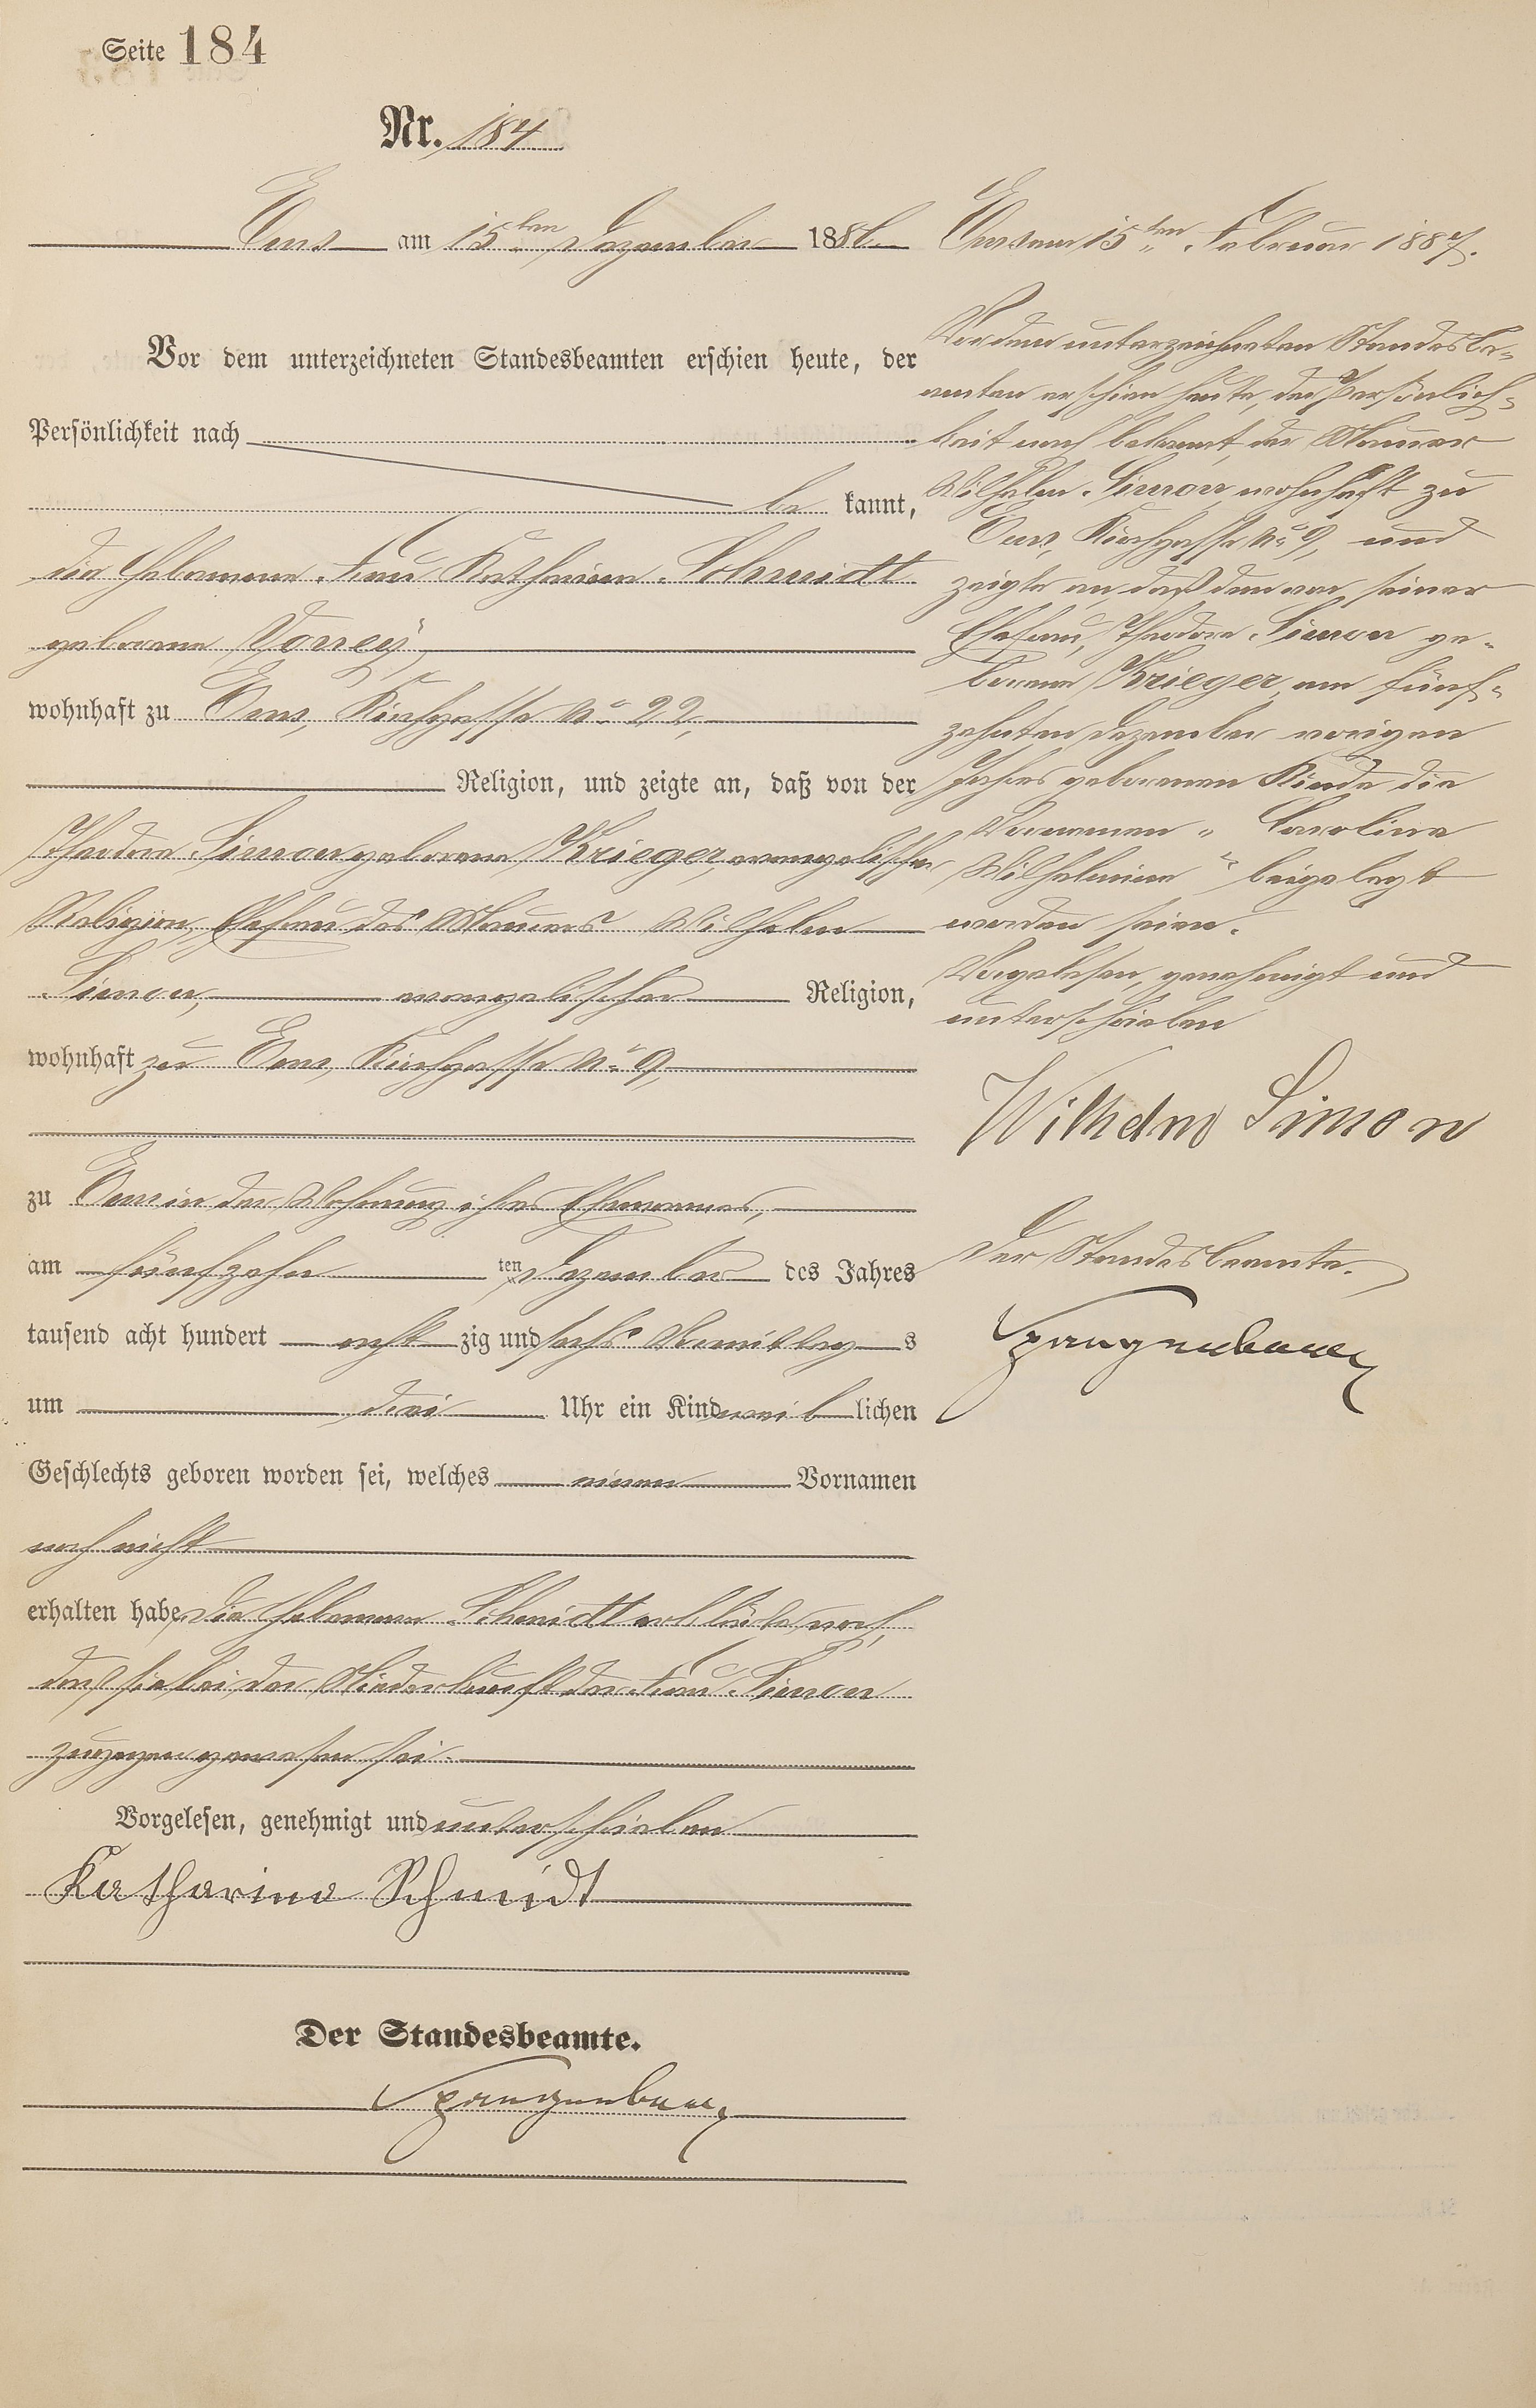 Seite 184
Nr. 184
Ems am 15ten Dezember 1886.
Vor dem unterzeichneten Standesbeamten erschien heute, der
Persönlichkeit nach
be kannt,
die Hebamme Frau Katharina Schmidt
geborene Vorrey,
wohnhaft zu Ems, Kirchgasse No 22,
Religion, und zeigte an, daß von der
Theodore Simon geborene Krieger, evangelischer
Religion, Ehefrau des Maurers Wilhelm
Simon, evangelischer Religion,
wohnhaft zu Ems, Kirchgasse No 9,
zu Ems in der Wohnung ihres Ehemannes,
am fünfzehn ten Dezember des Jahres
tausend acht hundert acht zig und sechs Vormittag s
um drei Uhr ein Kind weib lichen
Geschlechts geboren worden sei, welches einen Vornamen
noch nicht
erhalten habe. Die Hebamme Schmidt erklärte noch,
daß sie bei der Niederkunft der Frau Simon
zugegen gewesen sei.
Vorgelesen, genehmigt und unterschrieben
Katharina Schmidt
Der Standesbeamte.
Spangenberg
Ems am 15ten Februar 1887.
Vor dem unterzeichneten Standesbe-
amten erschien heute, der Persönlich-
keit nach bekannt, der Maurer
Wilhelm Simon, wohnhaft zu
Ems, Kirchgasse No 9, und
zeigte an, daß dem von seiner
Ehefrau, Theodore Simon ge-
borene Krieger, am fünf-
zehnten Dezember vorigen
Jahres geborenen Kinde die
Vornamen „Carolina
Wilhelmine“ beigelegt
worden seien.
Vorgelesen, genehmigt und
unterschrieben
Wilhelm Simon
Der Standesbeamte.
Spangenberg